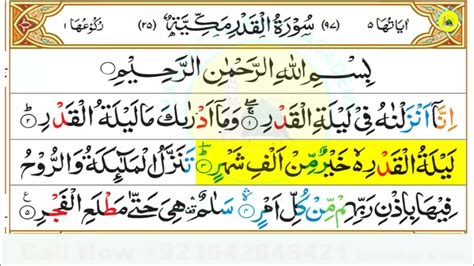 اٰيَاتُهَا ٥ (٩٧) سُوْرَةُ الْقَدْرِ مَكِّيَّةٌ (٢٥) رُكُوْعُهَا ١
بِسْمِ اللّٰهِ الرَّحْمٰنِ الرَّحِيْمِ
اِنَّاۤ اَنْزَلْنٰهُ فِيْ لَيْلَةِ الْقَدْرِ ۚۖ ۝١ وَمَاۤ اَدْرٰىكَ مَا لَيْلَةُ الْقَدْرِ ؕ ۝٢
لَيْلَةُ الْقَدْرِ ۙ۬ خَيْرٌ مِّنْ اَلْفِ شَهْرٍ ؕ ۝٣ تَنَزَّلُ الْمَلٰٓئِكَةُ وَالرُّوْحُ
فِيْهَا بِاِذْنِ رَبِّهِمْ ۚ مِنْ كُلِّ اَمْرٍ ۙ ۝٤ سَلٰمٌ ۛ۫ هِيَ حَتّٰى مَطْلَعِ الْفَجْرِ ۝٥ ع
Call Now +923042645421